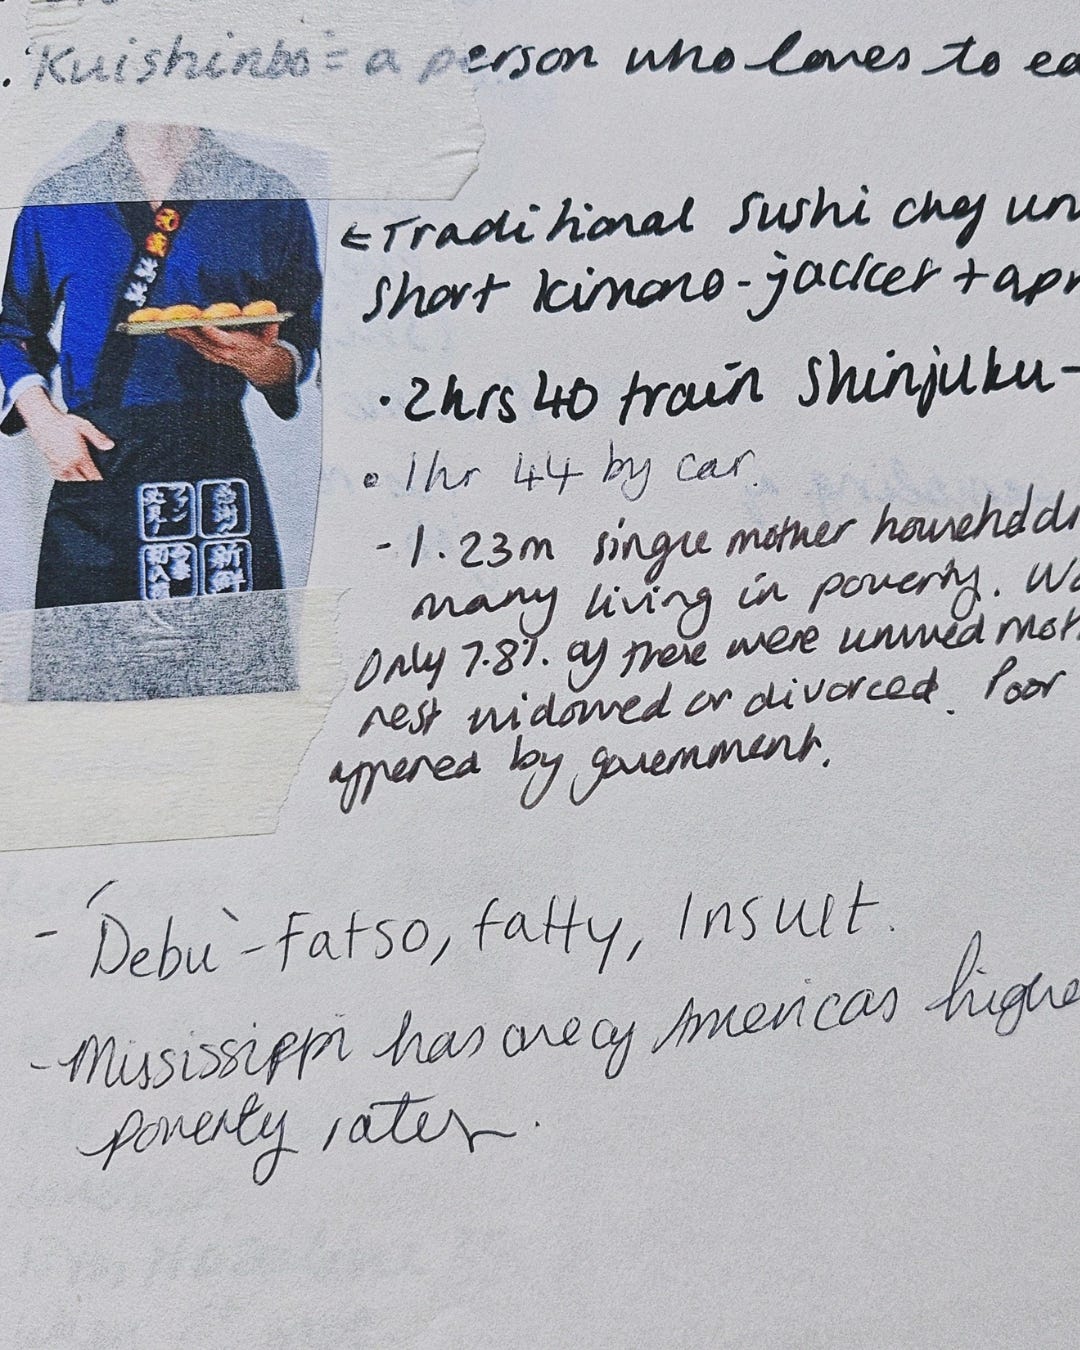 . 'Kuishinbo' = a person who loves to ea
← Traditional Sushi chef un
Short kimono-jacket + apr
• 2hrs 40 train Shinjuku -
• 1hr 44 by car.
- 1.23m single mother households
many living in poverty.
Only 7.8% of these were unwed mot
rest widowed or divorced. Poor
offered by government.
新鮮
- 'Debu' - Fatso, fatty, Insult.
- Mississippi has one of Americas highe
poverty rates.